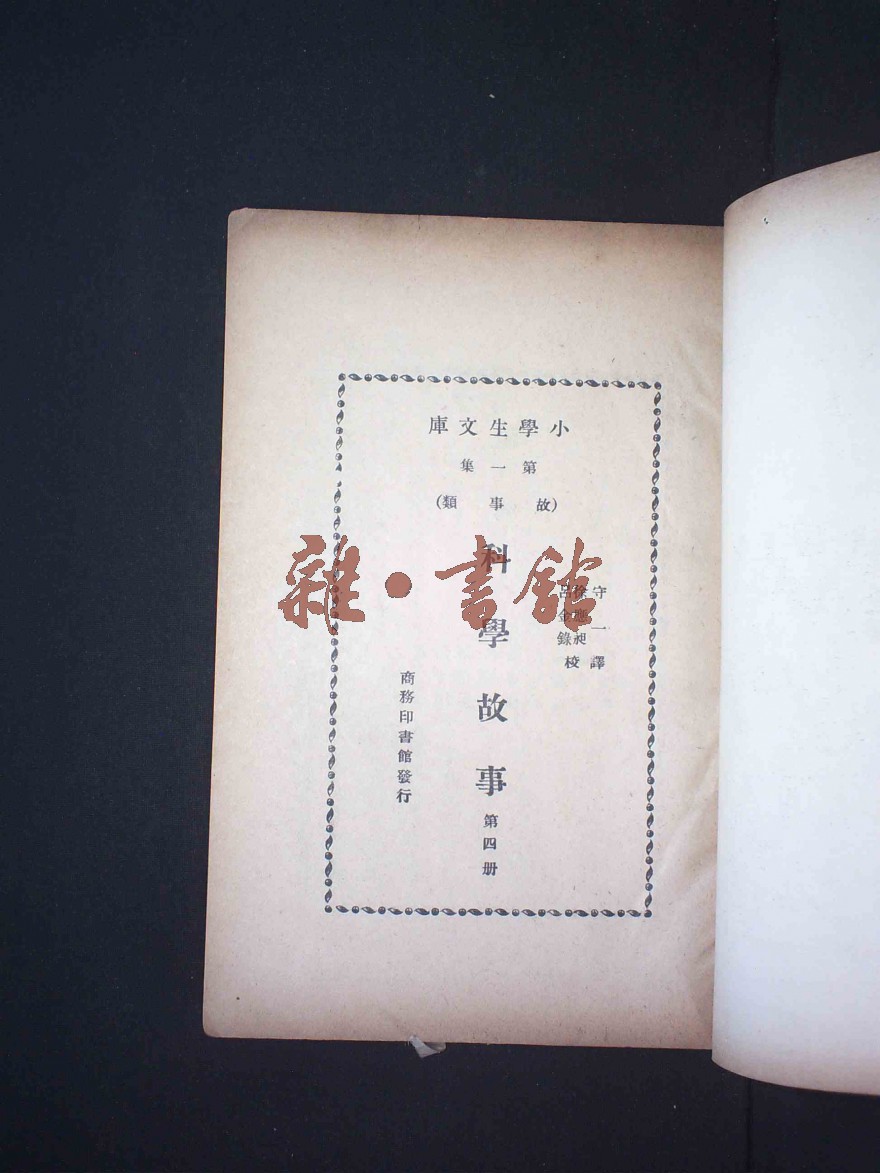 小學生文庫
第一集
(故事類)
守一譯
徐應昶
呂金錄
校
科學故事 第四册
商務印書館發行
雜·書館